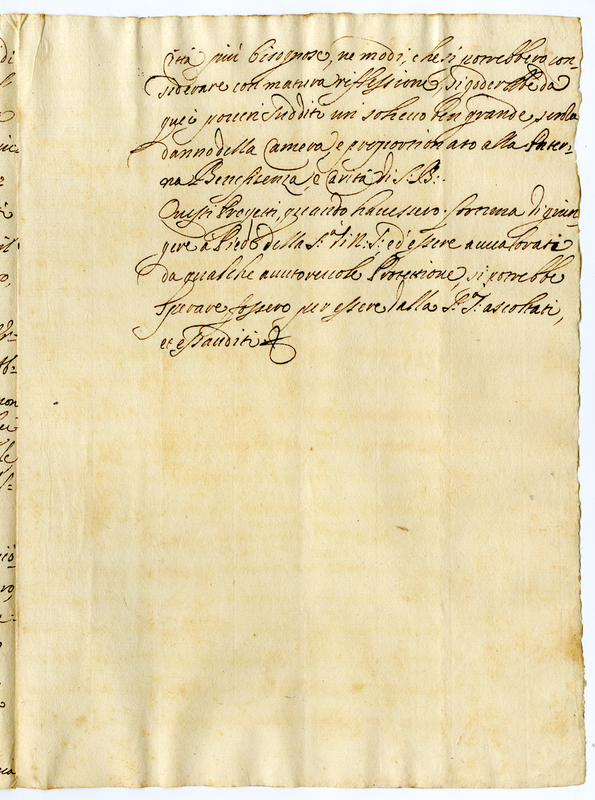 ità più bisognose, ne modi, che si potrebbero con=
siderare con matura riflessione, si goderebbe da
quei poveri Sudditi un solievo ben grande, senza
danno della Camera, e proportionato alla Pater=
na Beneficenza, e Carità di S. B.
Questi Progetti, quando havessero fortuna di giun=
gere à Piedi della S.tà di N. S. ed'essere avvalorati
da qualche auttorevole Protettione, si potrebbe
sperare fossero per essere dalla S.tà S. ascoltati,
et essauditi